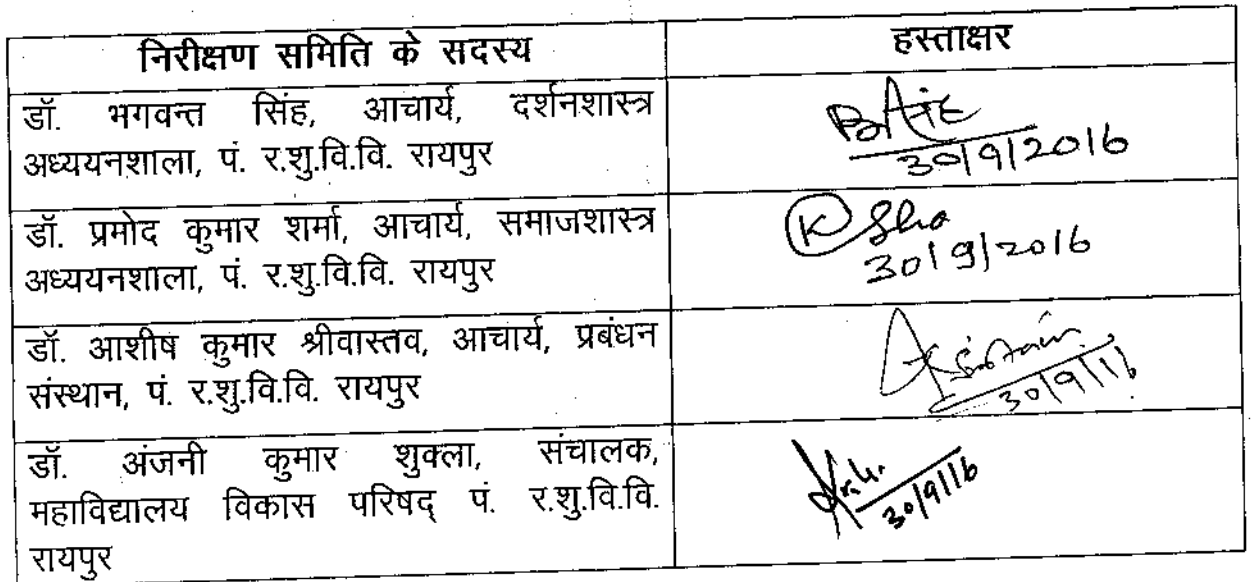 निरीक्षण समिति के सदस्य हस्ताक्षर
डॉ. भगवन्त सिंह, आचार्य, दर्शनशास्त्र
अध्ययनशाला, पं. र.शु.वि.वि. रायपुर
30/9/2016
डॉ. प्रमोद कुमार शर्मा, आचार्य, समाजशास्त्र
अध्ययनशाला, पं. र.शु.वि.वि. रायपुर
30/9/2016
डॉ. आशीष कुमार श्रीवास्तव, आचार्य, प्रबंधन
संस्थान, पं. र.शु.वि.वि. रायपुर
30/9/16
डॉ. अंजनी कुमार शुक्ला, संचालक,
महाविद्यालय विकास परिषद् पं. र.शु.वि.वि.
रायपुर
30/9/16